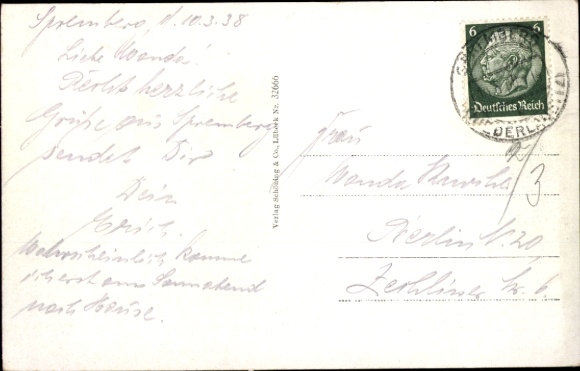 Spremberg, d. 10.3.38
Liebe Wanda!
Recht herzliche
Grüße aus Spremberg
sendet Dir
Dein
Erich.
Wahrscheinlich komme
ich erst am Sonnabend
nach Hause.
Verlag Schöning & Co., Lübeck Nr. 32666
6 6
Deutsches Reich
SPREMBERG
Frau
Wanda
Berlin N. 20,
Str. 6
2/3